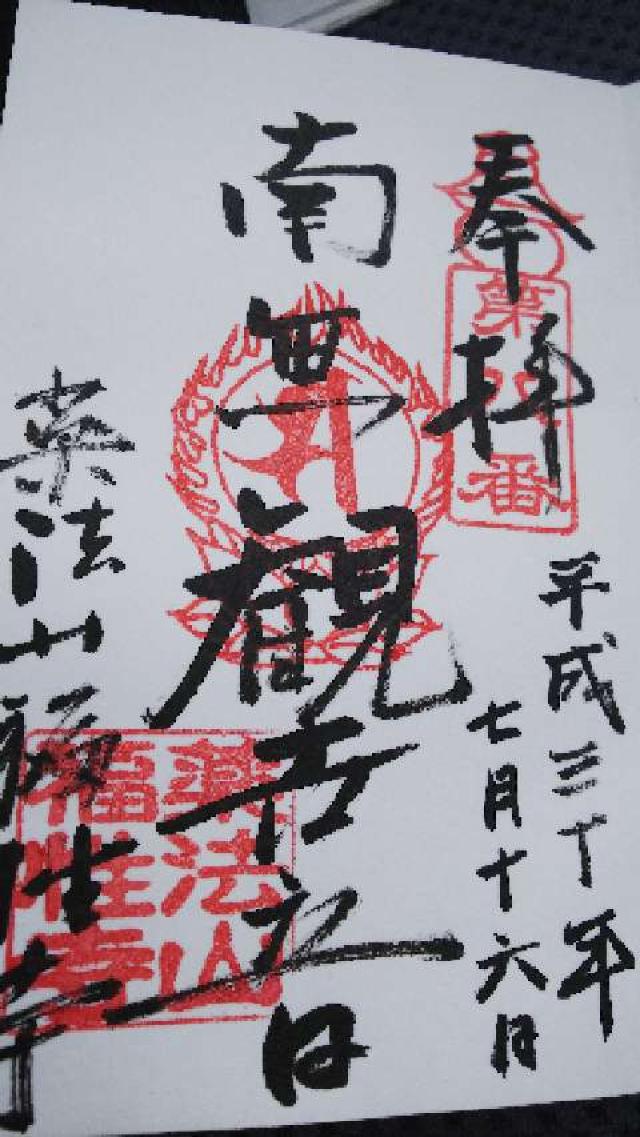 奉拝
第八番
平成三十年
七月十六日
南無觀世音
薬法山福性寺
薬法山
福性寺